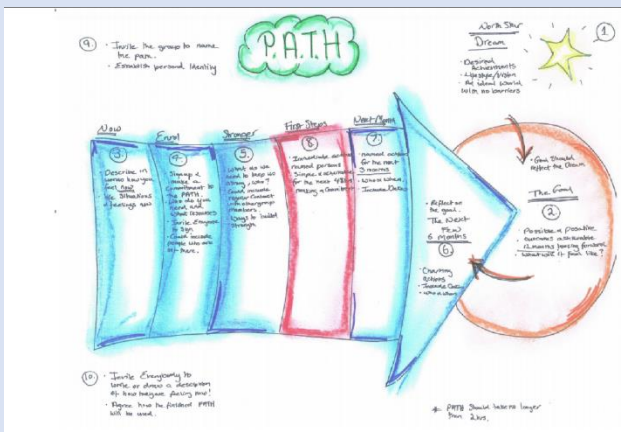 9. · Invite the group to name
the path.
· Establish personal identity
P.A.T.H
North Star
Dream
1
· Desired
Achievements
· Lifestyle/Vision
· An ideal world
with no barriers
Now
3.
· Describe in
words how you
feel now
situations
& feelings now
Enrol
4.
· Sign up &
make a
commitment to
the PATH.
· Who do you
need and
what resources
· Invite Everyone
to sign
· Could include
people who are
not there.
Stronger
5.
· What do we
need to keep us
strong, who?
· Could include
regular contact
with other group
members
· Ways to build
strength
First Steps
8.
· Immediate action
named persons
Simple & achievable
for the next
making a commitment
7.
· named actions
for the next
3 months
· Who & When
· Include Dates
· Reflect on
the goal.
The Next
Few
6 months
6.
· Charting
actions
· Include Dates
· who & when
· Goal Should
reflect the Dream
The Goal
2
· Possible & positive
outcomes achievable
12 months facing forward
· What will it feel like?
10. · Invite Everybody to
write or draw a description
of how they are feeling now!
· Agree how the finished PATH
will be used.
* PATH Should take no longer
than 2 hrs.